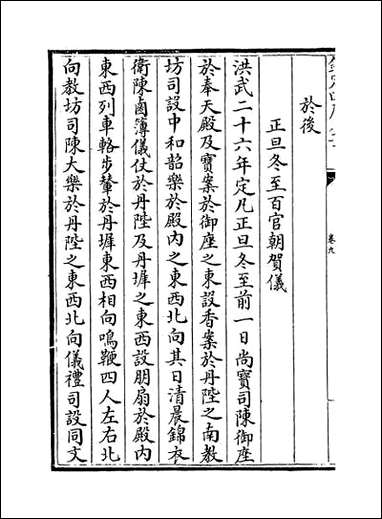 卷九
於後
正旦冬至百官朝賀儀
洪武二十六年定凡正旦冬至前一日尚寶司陳御座
於奉天殿及寶案於御座之東設香案於丹陛之南教
坊司設中和韶樂於殿內之東西北向其日清晨錦衣
衛陳鹵簿儀仗於丹陛及丹墀之東西設明扇於殿內
東西列車輅步輦於丹墀東西相向鳴鞭四人左右北
向教坊司陳大樂於丹陛之東西北向儀禮司設同文